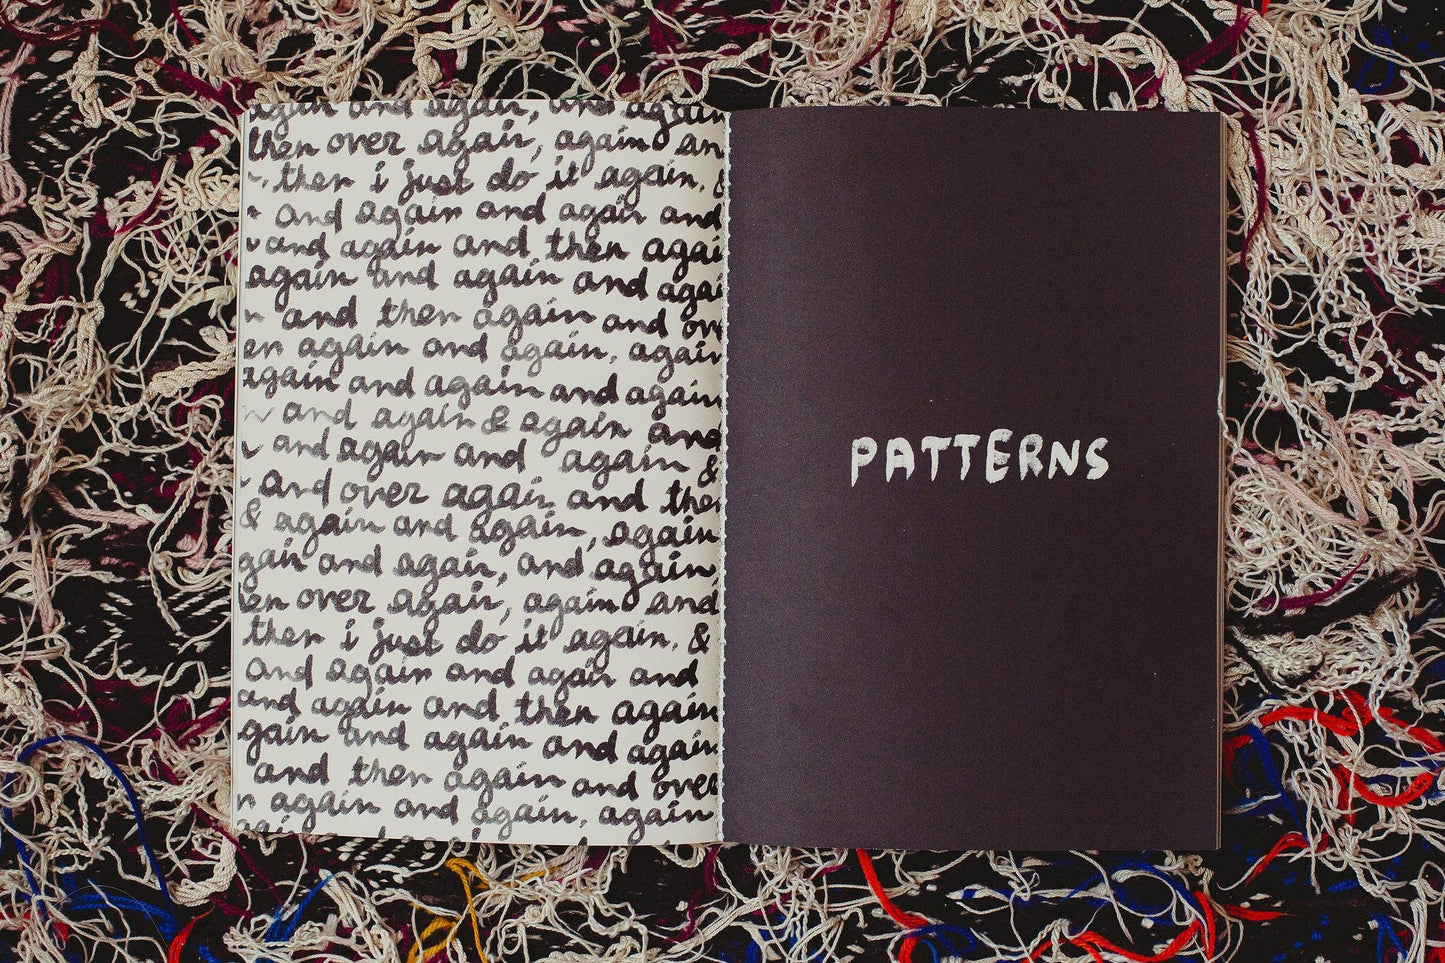 again and again, and again
then over again, again an
then i just do it again. &
and again and again and
and again and then agai
again and again and agai
and then again and ove
en again and again, again
again and again and again
and again & again and
and again and again &
and over again and the
& again and again, again
gain and again, and again
en over again, again and
then i just do it again. &
and again and again and
and again and then again
gain and again and again
and then again and over
n again and again, again
PATTERNS